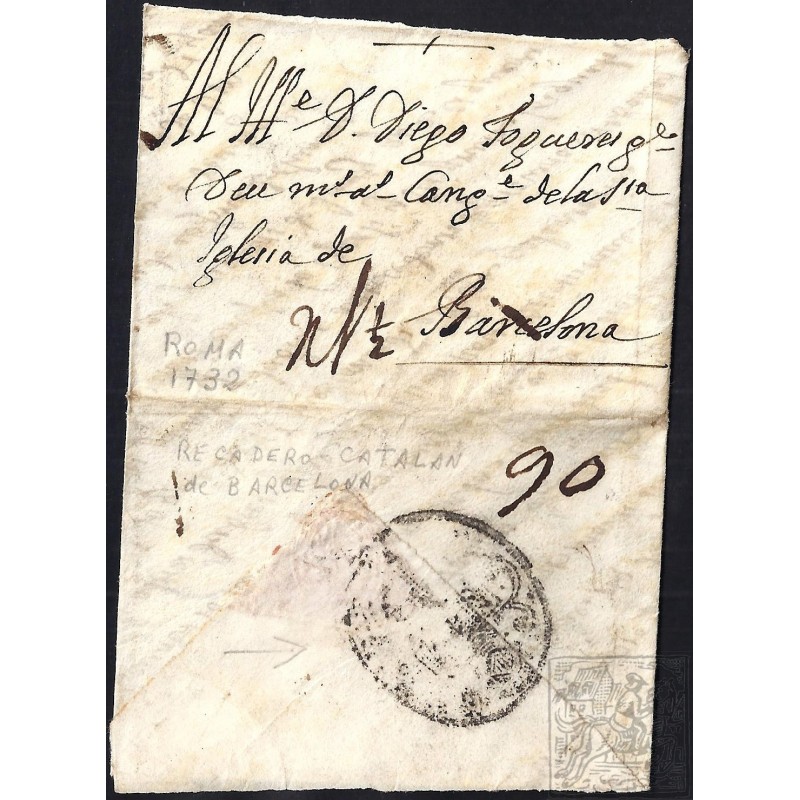 Al Ille D. Diego Fogueres
Deu Cange de la Sta
Iglesia de
Barcelona
ROMA
1732
RECADERO-CATALAN
de BARCELONA
90